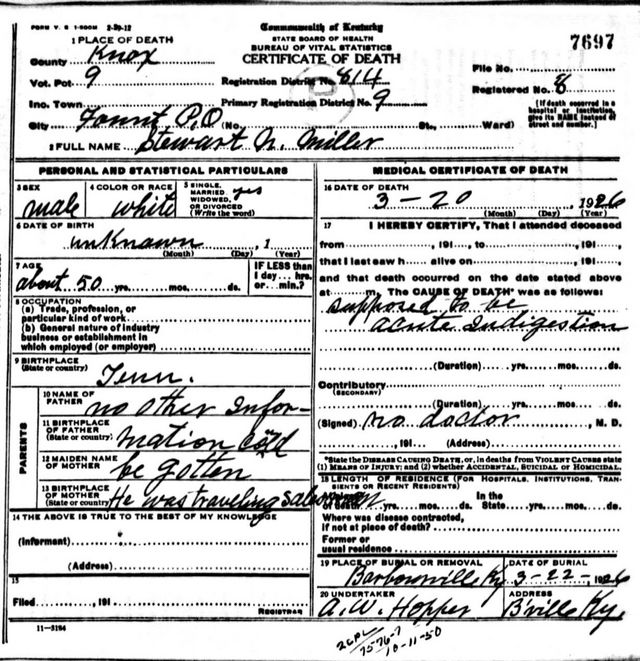 FORM V. S 1-500M 2-29-12
Commonwealth of Kentucky
STATE BOARD OF HEALTH
BUREAU OF VITAL STATISTICS
CERTIFICATE OF DEATH
7697
1 PLACE OF DEATH
County Knox
Vot. Pct 9
Inc. Town
City P.O (No. St., Ward)
Registration District No. 814
Primary Registration District No. 9
File No.
Registered No. 8
[If death occurred in a hospital or institution, give its NAME instead of street and number.]
2 FULL NAME Stewart N. Miller
PERSONAL AND STATISTICAL PARTICULARS
3 SEX male
4 COLOR OR RACE white
5 SINGLE, MARRIED, WIDOWED, OR DIVORCED (Write the word) yes
6 DATE OF BIRTH unknown , 1
(Month) (Day) (Year)
7 AGE about 50 yrs. mos. ds.
IF LESS than 1 day... hrs. or... min.?
8 OCCUPATION
(a) Trade, profession, or
particular kind of work
(b) General nature of industry
business or establishment in
which employed (or employer)
9 BIRTHPLACE
(State or country) Tenn.
PARENTS
10 NAME OF FATHER no other infor-
11 BIRTHPLACE OF FATHER (State or country) mation could
12 MAIDEN NAME OF MOTHER be gotten
13 BIRTHPLACE OF MOTHER (State or country) He was traveling salesman
14 THE ABOVE IS TRUE TO THE BEST OF MY KNOWLEDGE
(Informant)
(Address)
15
Filed , 191
REGISTRAR
11-3184
MEDICAL CERTIFICATE OF DEATH
16 DATE OF DEATH
3-20 , 1926
(Month) (Day) (Year)
17 I HEREBY CERTIFY, That I attended deceased
from , 191 , to , 191 ,
that I last saw h alive on , 191 ,
and that death occurred on the date stated above
at m. The CAUSE OF DEATH* was as follows:
supposed to be
acute indigestion
(Duration) yrs. mos. ds.
Contributory
(SECONDARY)
(Duration) yrs. mos. ds.
(Signed) no doctor , M. D.
, 191 (Address)
*State the DISEASE CAUSING DEATH, or, in deaths from VIOLENT CAUSES state
(1) MEANS OF INJURY; and (2) whether ACCIDENTAL, SUICIDAL or HOMICIDAL.
18 LENGTH OF RESIDENCE (FOR HOSPITALS, INSTITUTIONS, TRANSIENTS OR RECENT RESIDENTS)
of death yrs. mos. ds. In the State yrs. mos. ds.
Where was disease contracted,
if not at place of death?
Former or
usual residence
19 PLACE OF BURIAL OR REMOVAL
Barbourville Ky
DATE OF BURIAL
3-22- 1926
20 UNDERTAKER
A. W. Hopper
ADDRESS
B'ville Ky.
75-76-7
10-11-50